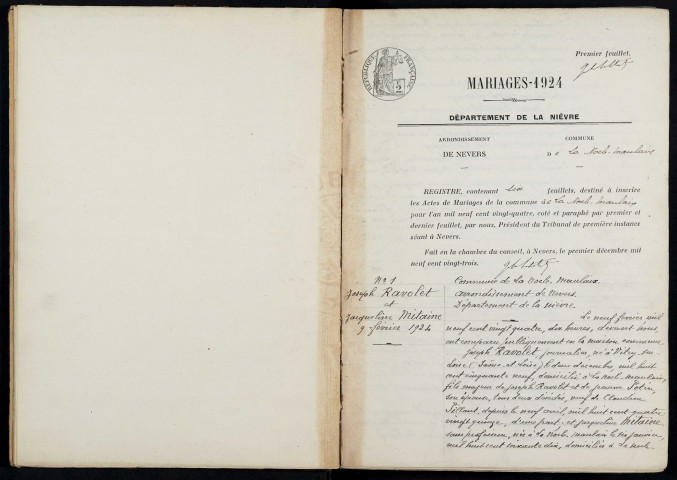 Premier feuillet.
RÉPUBLIQUE FRANÇAISE
2
MARIAGES-1924
DÉPARTEMENT DE LA NIÈVRE
ARRONDISSEMENT
DE NEVERS
COMMUNE
De La Nocle-Maulaix
REGISTRE, contenant six feuillets, destiné à inscrire
les Actes de Mariages de la commune de La Nocle-Maulaix
pour l'an mil neuf cent vingt-quatre, coté et paraphé par premier et
dernier feuillet, par nous, Président du Tribunal de première instance
séant à Nevers.
Fait en la chambre du conseil, à Nevers, le premier décembre mil
neuf cent vingt-trois.
No 1
Joseph Ravolet
et
Jacqueline Mitaine
9 février 1924
Commune de La Nocle-Maulaix
arrondissement de Nevers.
Département de la Nièvre.
Le neuf février mil
neuf cent vingt quatre, dix heures, devant nous
ont comparu publiquement en la maison commune
Joseph Ravolet, journalier, né à Vitry-sur-
Loire (Saône-et-Loire) le deux décembre, mil huit
cent cinquante neuf, domicilié à La Nocle-Maulaix,
fils majeur de Joseph Ravolet et de Jeanne
son épouse, tous deux décédés, veuf de Claudine
depuis le neuf avril, mil huit cent quatre
vingt quinze, d'une part, et Jacqueline Mitaine
sans profession, née à La Nocle-Maulaix le janvier,
mil huit cent soixante dix, domiciliée à La Nocle-